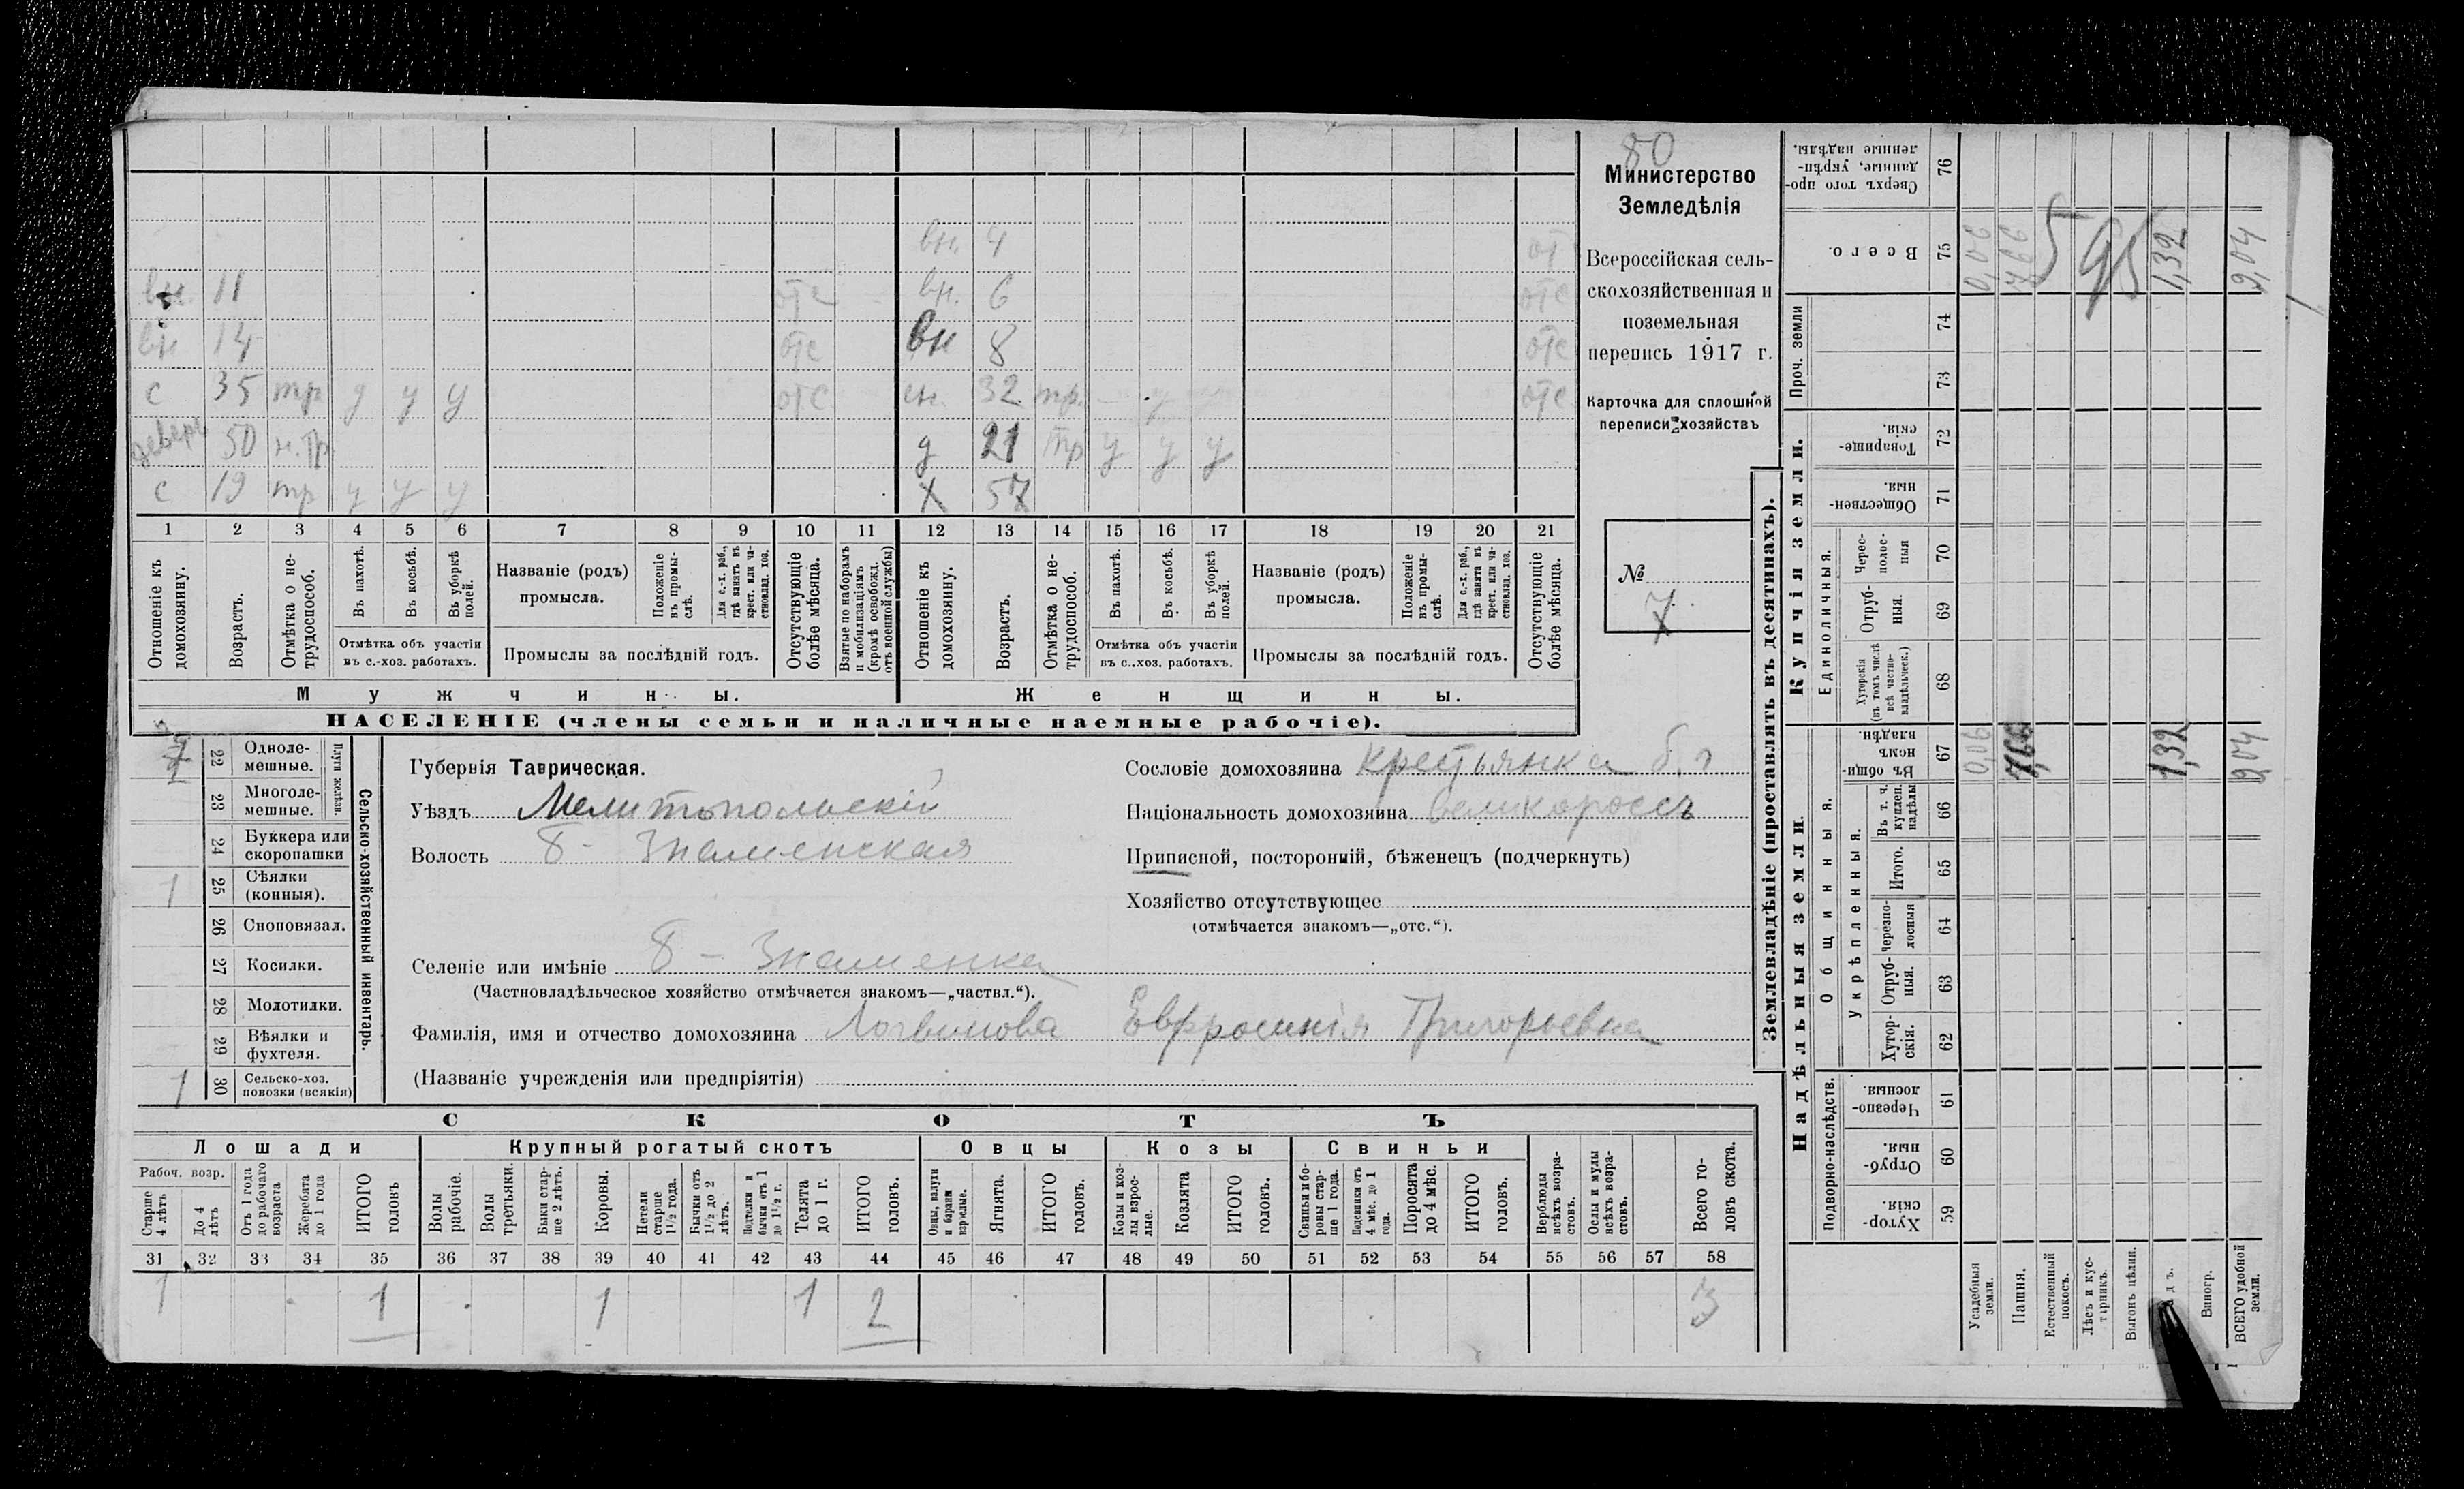 80
Министерство
Земледѣлія
Всероссійская сель-
скохозяйственная и
поземельная
перепись 1917 г.
Карточка для сплошной
переписи хозяйствъ
№
7
вн. 4 от
вн. 11 отс вн. 6 отс
вн 14 отс вн 8 отс
с 35 тр у у у отс сн. 32 тр. у отс
деверь 50 н.тр д 21 тр у у у
с 19 тр у у у х 57
1 2 3 4 5 6 7 8 9 10 11 12 13 14 15 16 17 18 19 20 21
Отношеніе къ домохозяину.
Возрастъ.
Отмѣтка о не-трудоспособ.
Въ пахотѣ.
Въ косьбѣ.
Въ уборкѣ полей.
Отмѣтка объ участіи въ с.-хоз. работахъ.
Названіе (родъ) промысла.
Положеніе въ промы-слѣ.
Для с.-х. раб., гдѣ занятъ въ крест. или ча-стновлад. хоз.
Промыслы за послѣдній годъ.
Отсутствующіе болѣе мѣсяца.
Взятые по наборамъ и мобилизаціямъ (кромѣ освобожд. отъ военной службы)
Отношеніе къ домохозяину.
Возрастъ.
Отмѣтка о не-трудоспособ.
Въ пахотѣ.
Въ косьбѣ.
Въ уборкѣ полей.
Отмѣтка объ участіи въ с.-хоз. работахъ.
Названіе (родъ) промысла.
Положеніе въ промы-слѣ.
Для с.-х. раб., гдѣ занята въ крест. или ча-стновлад. хоз.
Промыслы за послѣдній годъ.
Отсутствующіе болѣе мѣсяца.
Мужчины. Женщины.
НАСЕЛЕНІЕ (члены семьи и наличные наемные рабочіе).
Сельско-хозяйственный инвентарь.
Плуги желѣзн.
22 Одноле-мешные.
23 Многоле-мешные.
24 Буккера или скоропашки
1 25 Сѣялки (конныя).
26 Сноповязал.
27 Косилки.
28 Молотилки.
29 Вѣялки и фухтеля.
1 30 Сельско-хоз. повозки (всякія)
Губернія Таврическая.
Уѣздъ Мелитопольскій
Волость Б- Знаменская
Селеніе или имѣніе Б- Знаменка
(Частновладѣльческое хозяйство отмѣчается знакомъ—„частвл.“).
Фамилія, имя и отчество домохозяина Логвинова Евфросинія Григорьевна
(Названіе учрежденія или предпріятія)
Сословіе домохозяина крестьянка
Національность домохозяина великороссъ
Приписной, посторонній, бѣженецъ (подчеркнуть)
Хозяйство отсутствующее
(отмѣчается знакомъ—„отс.“).
СКОТЪ
Лошади Крупный рогатый скотъ Овцы Козы Свиньи
Рабоч. возр.
Старше 4 лѣтъ
До 4 лѣтъ
Отъ 1 года до рабочаго возраста
Жеребята до 1 года
ИТОГО головъ
Волы рабочіе.
Волы третьяки.
Быки стар-ше 2 лѣтъ.
Коровы.
Нетели старше 1½ года.
Бычки отъ 1½ до 2 лѣтъ.
Подтелки и бычки отъ 1 до 1½ г.
Телята до 1 г.
ИТОГО головъ.
Овцы, валухи и бараны взрослые.
Ягнята.
ИТОГО головъ.
Козы и коз-лы взрос-лые.
Козлята
ИТОГО головъ.
Свиньи и бо-ровы стар-ше 1 года.
Подсвинки отъ 4 мѣс. до 1 года.
Поросята до 4 мѣс.
ИТОГО головъ.
Верблюды всѣхъ возра-стовъ.
Ослы и мулы всѣхъ возра-стовъ.
Всего го-ловъ скота.
31 32 33 34 35 36 37 38 39 40 41 42 43 44 45 46 47 48 49 50 51 52 53 54 55 56 57 58
1 1 1 1 2 3
Землевладѣніе (проставлять въ десятинахъ).
Надѣльныя земли.
Купчія земли.
Проч. земли
Подворно-наслѣдств.
Общинныя.
Укрѣпленныя.
Единоличныя.
Сверхъ того про-данные, укрѣп-ленные надѣлы. 76
Всего. 75 0,06 7,66 1,32 9,04
5 95
74
73
Товарище-скія. 72
Обществен-ныя. 71
Черес-полос-ныя 70
Отруб-ныя. 69
Хуторскія (въ томъ числѣ всѣ частно-владѣльческ.) 68
Въ общин-номъ владѣн. 67 0,06 7,66 1,32 9,04
Въ т. ч. куплен. надѣлы 66
Итого. 65
Черезпо-лосныя 64
Отруб-ныя. 63
Хутор-скія. 62
Черезпо-лосныя 61
Отруб-ныя. 60
Хутор-скія. 59
Усадебныя земли.
Пашня.
Естественный покосъ.
Лѣсъ и кус-тарникъ.
Выгонъ цѣлин.
Виногр.
ВСЕГО удобной земли.